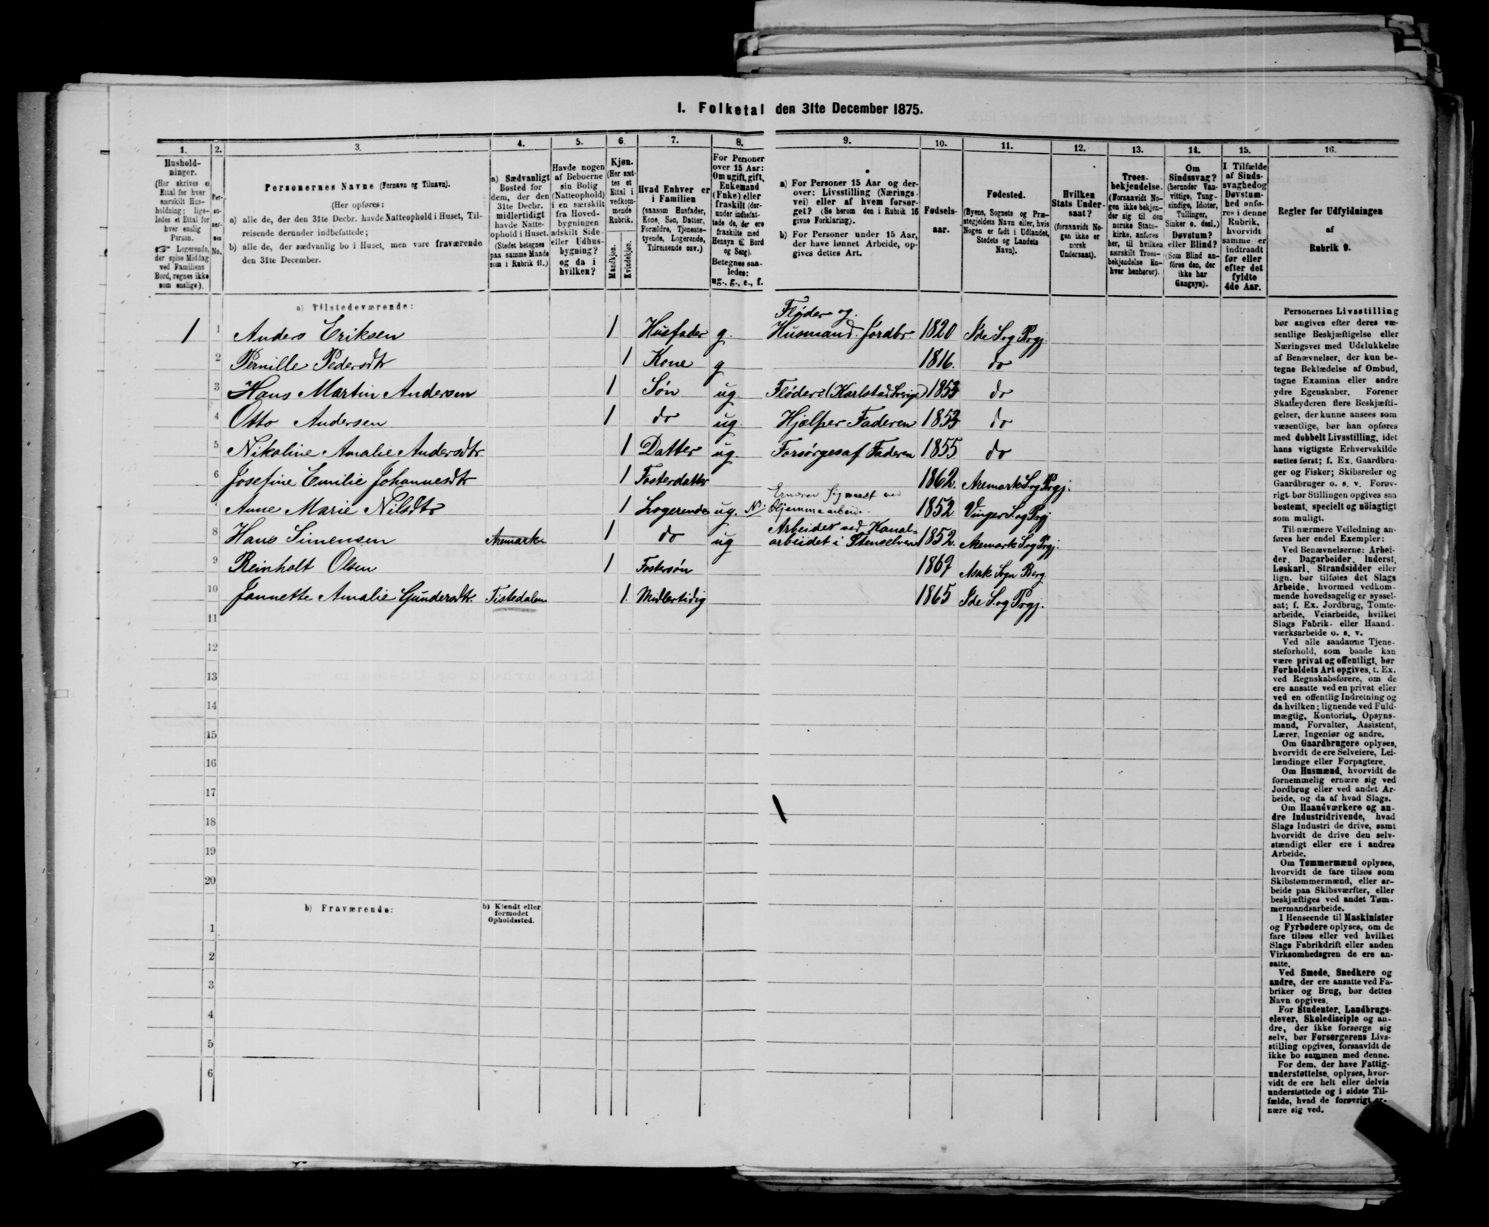 1. Folketal den 31te December 1875.
1. 2. 3. 4. 5. 6. 7. 8. 9. 10. 11. 12. 13. 14. 15. 16.
Hushold-
ninger.
(Her skrives et
Ettal for hver
særskilt Hus-
holdning; lige-
ledes et Ettal for
hver enslig
Person.
☞ Logerende,
der spise Middag
ved Familiens
Bord, regnes ikke
som enslige).
Per-
so-
ner-
nes
No.
Personernes Navne (Fornavn og Tilnavn).
(Her opføres:
a) alle de, der den 31te Decbr. havde Natteophold i Huset, Til-
reisende derunder indbefattede;
b) alle de, der sædvanlig bo i Huset, men vare fraværende
den 31te December.
a) Sædvanligt
Bosted for
dem, der den
31te Decbr.
midlertidigt
havde Natte-
ophold i Huset.
(Stedet betegnes
paa samme Maade
som i Rubrik 11.)
Havde nogen
af Beboerne
sin Bolig
(Natteophold)
i en særskilt
fra Hoved-
bygningen
adskilt Side-
eller Udhus-
bygning?
og da i
hvilken?
Kjøn.
(Her sæt-
tes et
Ettal i
vedkom-
mende
Rubrik.
Mandkjøn.
Kvindekjøn.
Hvad Enhver er
i Familien
(saasom Husfader,
Kone, Søn, Datter,
Forældre, Tjeneste-
tyende, Logerende,
Tilreisende osv.)
For Personer
over 15 Aar:
Om ugift, gift,
Enkemand
(Enke) eller
fraskilt (der-
under indbefat-
tede de, der ere
fraskilte med
Hensyn til Bord
og Seng).
Betegnes saa-
ledes:
ug., g., e., f.
a) For Personer 15 Aar og der-
over: Livsstilling (Nærings-
vei) eller af hvem forsør-
get? (Se herom den i Rubrik 16
givne Forklaring).
b) For Personer under 15 Aar,
der have lønnet Arbeide, op-
gives dettes Art.
Fødsels-
aar.
Fødested.
(Byens, Sognets og Præ-
stegjeldets Navn eller, hvis
Nogen er født i Udlandet,
Stedets og Landets
Navn).
Hvilken
Stats Under-
saat?
(forsaavidt No-
gen ikke er
norsk
Undersaat).
Troes-
bekjendelse.
(Forsaavidt No-
gen ikke bekjen-
der sig til den
norske Stats-
kirke, anføres
her, til hvilken
særskilt Troes-
bekjendelse En-
hver henhører).
Om
Sindssvag?
(herunder Van-
vittige, Tung-
sindige, Idioter,
Tullinger,
Sinker o. desl.)
Døvstum?
eller Blind?
(Som Blind an-
føres den, der
ikke har
Gangsyn).
I Tilfælde
af Sinds-
svaghed og
Døvstum-
hed anfø-
res i denne
Rubrik,
hvorvidt
samme er
indtraadt
før eller
efter det
fyldte
4de Aar.
Regler for Udfyldningen
af
Rubrik 9.
a) Tilstedeværende:
Fløder og
1 1 Anders Eriksen 1 Husfader g. Husmand. Jordbr. 1820 Ide S. og Prgj.
2 Pernille Pedersdtr 1 Kone g 1816. do
3 Hans Martin Andersen 1 Søn ug Fløder (Karlstad Sverige) 1853 do
4 Otto Andersen 1 do ug. Hjelper Faderen 1853 do
5 Nikoline Amalie Andersdtr 1 Datter ug Forsørges af Faderen 1855 do
6 Josefine Emilie Johannesdtr 1 Fosterdatter 1862. Aremark S. og Prgj.
Ernærer sig mest ved
Anne Marie Nilsdtr 1 Logerende ug. Hjemmearbeide. 1852 Vinger S. og Prgj
Arbeider ved Kanal-
8 Hans Simensen Aremark 1 do ug arbeidet i Stenselven 1852. Aremark S. og Prgj.
9 Reinholt Olsen 1 Fostersøn 1869 Asak Sogn Berg
10 Jannette Amalie Gundersdtr. Tistedalen 1. Midlertidig 1865 Ide S. og Prgj.
11
12
13
14
15
16
17
18
19
20
b) Fraværende:
b) Kjendt eller
formodet
Opholdssted.
1
2
3
4
5
6
Personernes Livsstilling
bør angives efter deres væ-
sentlige Beskjæftigelse eller
Næringsvei med Udelukkelse
af Benævnelser, der kun be-
tegne Beklædelse af Ombud,
tagne Examina eller andre
ydre Egenskaber. Forener
Skatteyderen flere Beskjæfti-
gelser, der kunne ansees som
væsentlige, bør han opføres
med dobbelt Livsstilling, idet
hans vigtigste Erhvervskilde
sættes først; f. Ex. Gaardbru-
ger og Fisker; Skibsreder og
Gaardbruger o. s. v. Forøv-
rigt bør Stillingen opgives saa
bestemt, specielt og nöiagtigt
som muligt.
Til nærmere Veiledning an-
føres her endel Exempler:
Ved Benævnelserne: Arbei-
der, Dagarbeider, Inderst,
Løskarl, Strandsidder eller
lign. bør tilføies det Slags
Arbeide, hvormed vedkom-
mende hovedsagelig er syssel-
sat; f. Ex. Jordbrug, Tomte-
arbeide, Veiarbeide, hvilket
Slags Fabrik- eller Haand-
værksarbeide o. s. v.
Ved alle saadanne Tjene-
steforhold, som baade kan
være privat og offentligt, bør
Forholdets Art opgives, t. Ex.
ved Regnskabsførere, om de
ere ansatte ved en privat eller
ved en offentlig Indretning og
da hvilken; lignende ved Fuld-
mægtig, Kontorist, Opsyns-
mand, Forvalter, Assistent,
Lærer, Ingeniør og andre.
Om Gaardbrugere oplyses,
hvorvidt de ere Selveiere, Lei-
lændinge eller Forpagtere.
Om Husmænd, hvorvidt de
fornemmelig ernære sig ved
Jordbrug eller ved andet Ar-
beide, og da af hvad Slags.
Om Haandværkere og an-
dre Industridrivende, hvad
Slags Industri de drive, samt
hvorvidt de drive den selv-
stændigt eller ere i andres
Arbeide.
Om Tømmermænd oplyses,
hvorvidt de fare tilsøs som
Skibstømmermænd, eller ar-
beide paa Skibsværfter, eller
beskjæftiges ved andet Tøm-
mermandsarbeide.
I Henseende til Maskinister
og Fyrbødere oplyses, om de
fare tilsøs eller ved hvilket
Slags Fabrikdrift eller anden
Virksomhedsgren de ere an-
satte.
Ved Smede, Snedkere og
andre, der ere ansatte ved Fa-
briker og Brug, bør dettes
Navn opgives.
For Studenter, Landbrugs-
elever, Skoledisciple og an-
dre, der ikke forsørge sig
selv, bør Forsørgerens Livs-
stilling opgives, forsaavidt de
ikke bo sammen med denne.
For dem, der have Fattig-
understøttelse, oplyses, hvor-
vidt de ere helt eller delvis
understøttede og i sidste Til-
fælde, hvad de forøvrigt er-
nære sig ved.